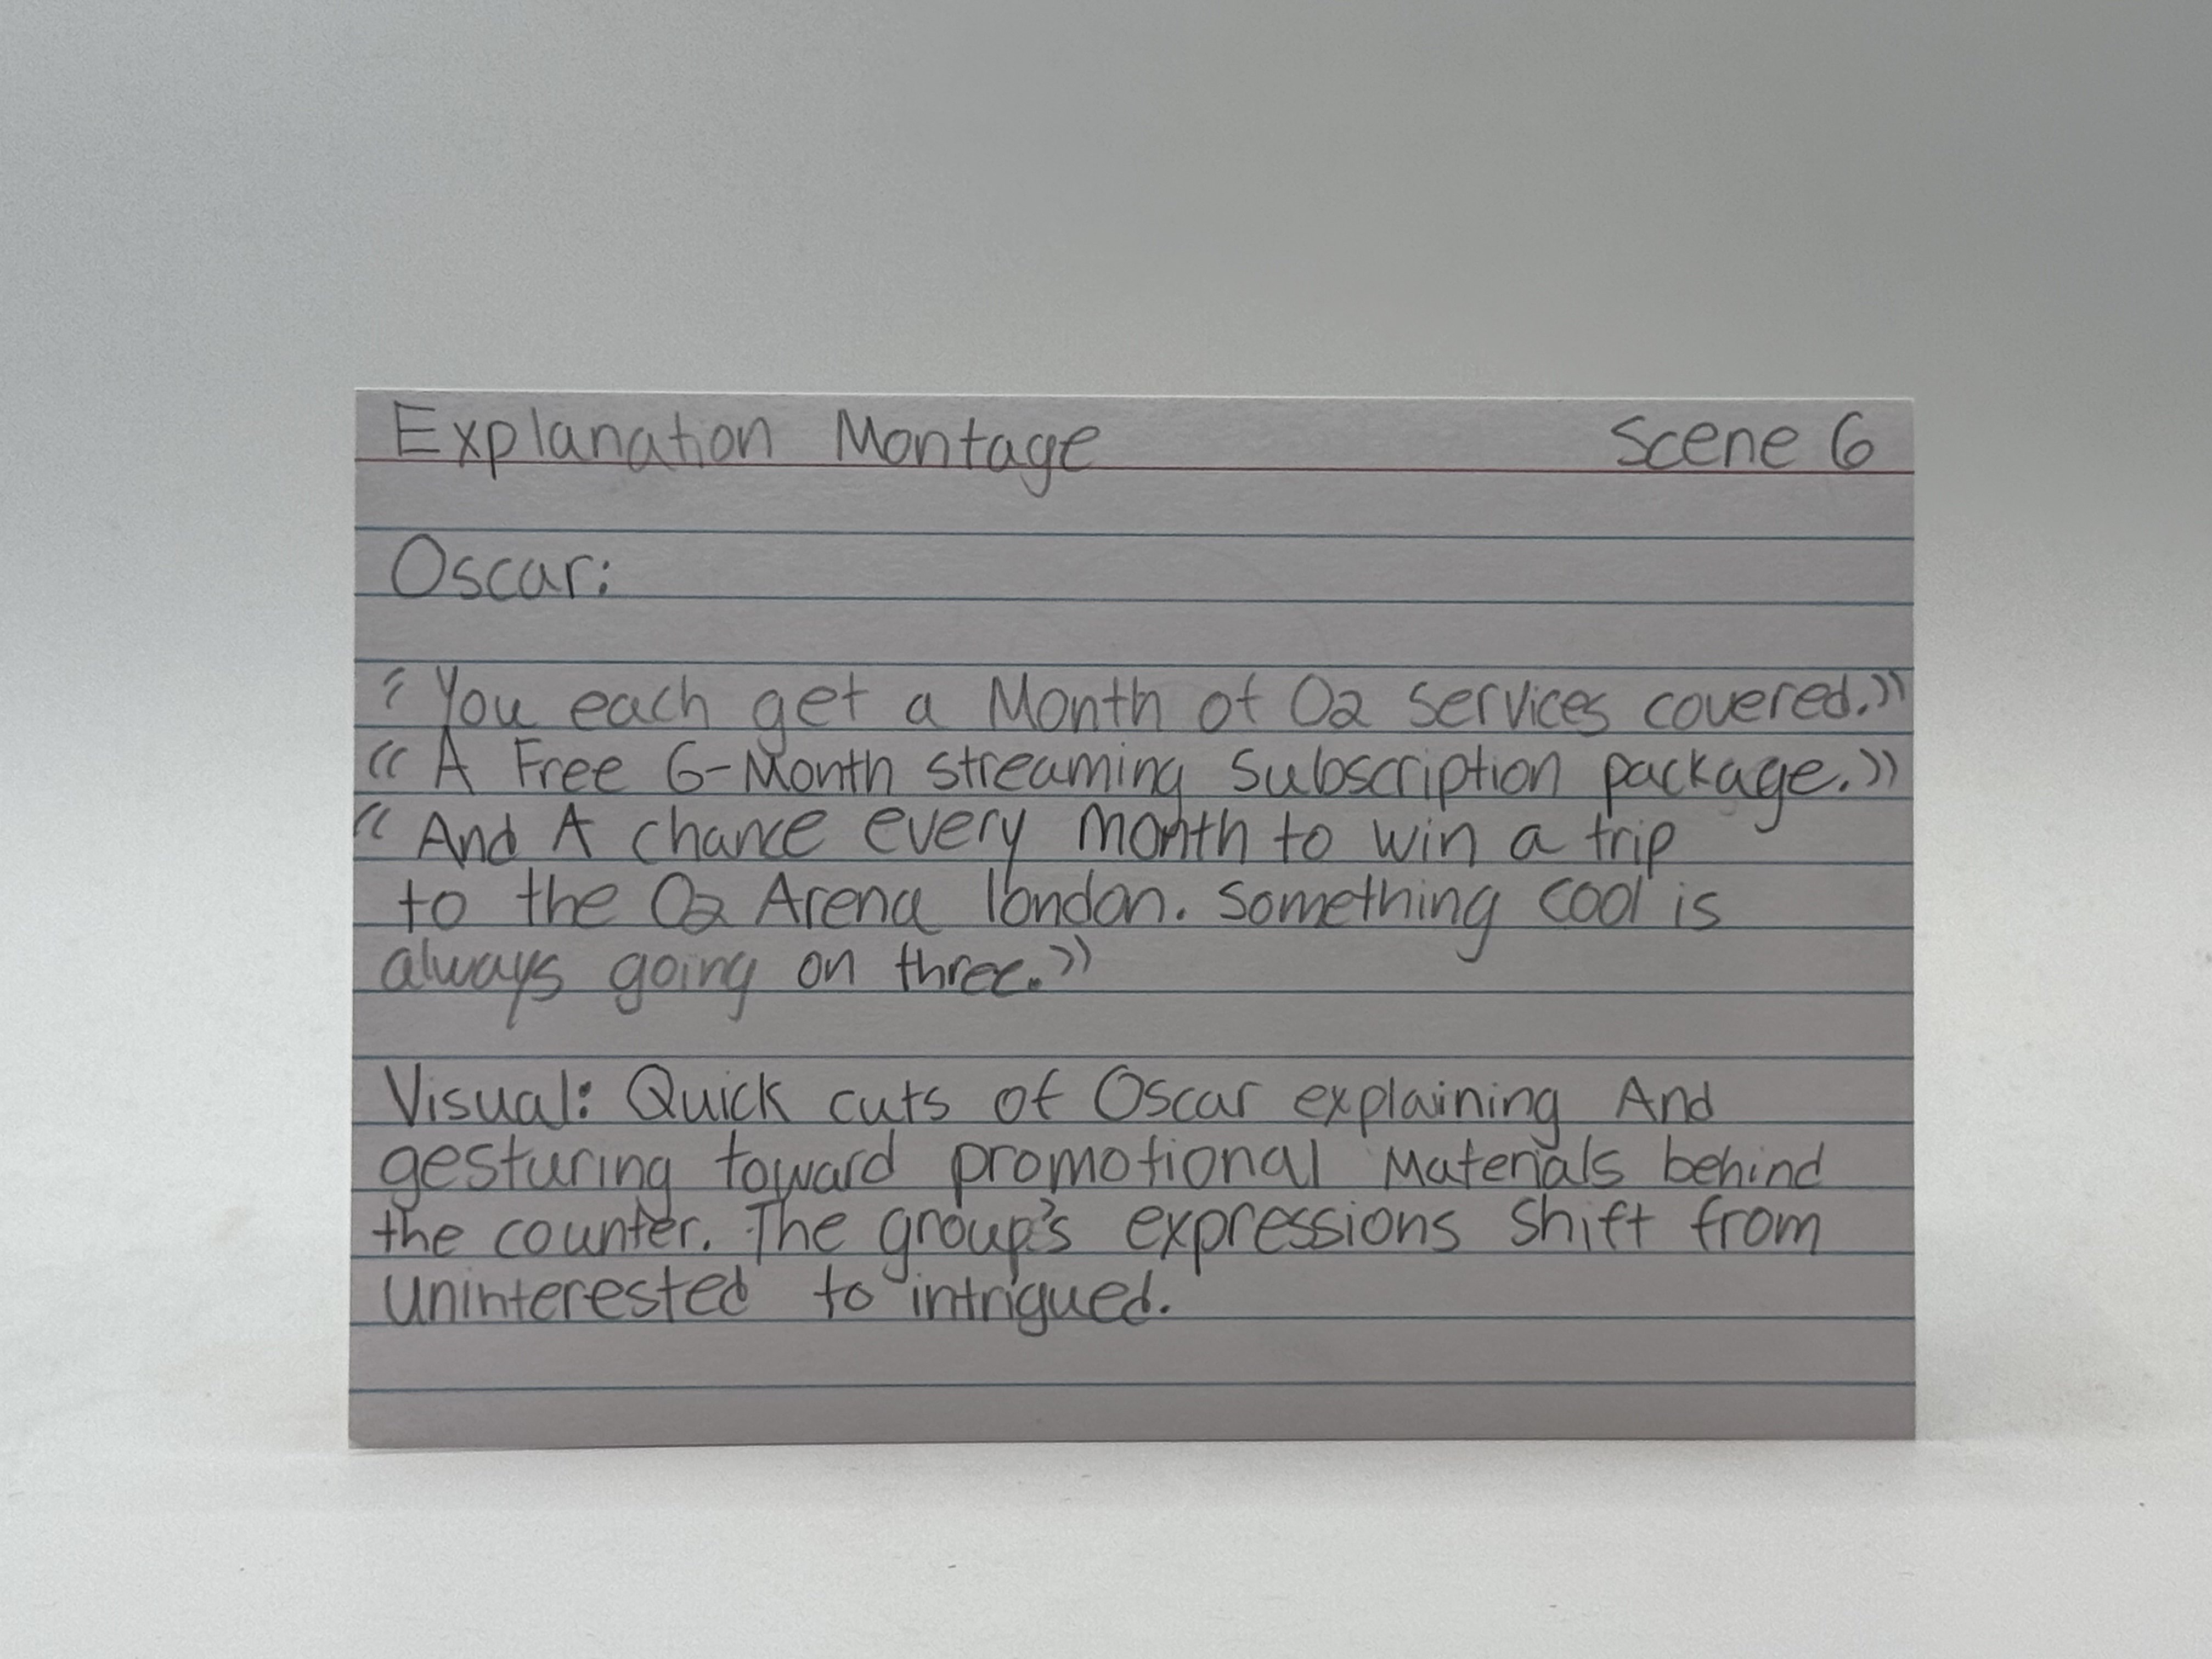 Explanation Montage Scene 6
Oscar:
"You each get a Month of O2 services covered."
"A Free 6-Month streaming subscription package."
"And A chance every month to win a trip
to the O2 Arena london. Something cool is
always going on three."
Visual: Quick cuts of Oscar explaining And
gesturing toward promotional Materials behind
the counter. The group's expressions shift from
uninterested to intrigued.